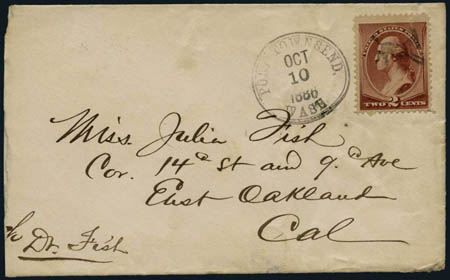 PORT TOWNSEND.
OCT
10
1886
WASH
TWO 2 CENTS
Miss. Julia Fish
Cor. 14th St and 9th Ave
East Oakland
Cal
c/o Dr. Fish